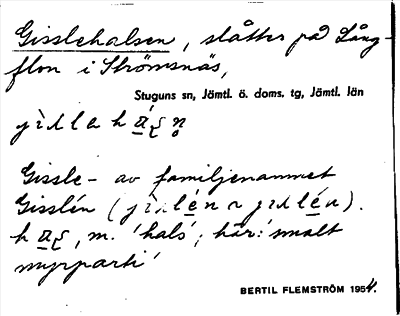 Gisslehalsen, slåtter på Lång-
flon i Strömsnäs,
Stuguns sn, Jämtl. ö. doms. tg, Jämtl. län
Gissle- av familjenamnet
Gisslén
m. 'hals'; här: 'smalt
myrparti'
BERTIL FLEMSTRÖM 1954.